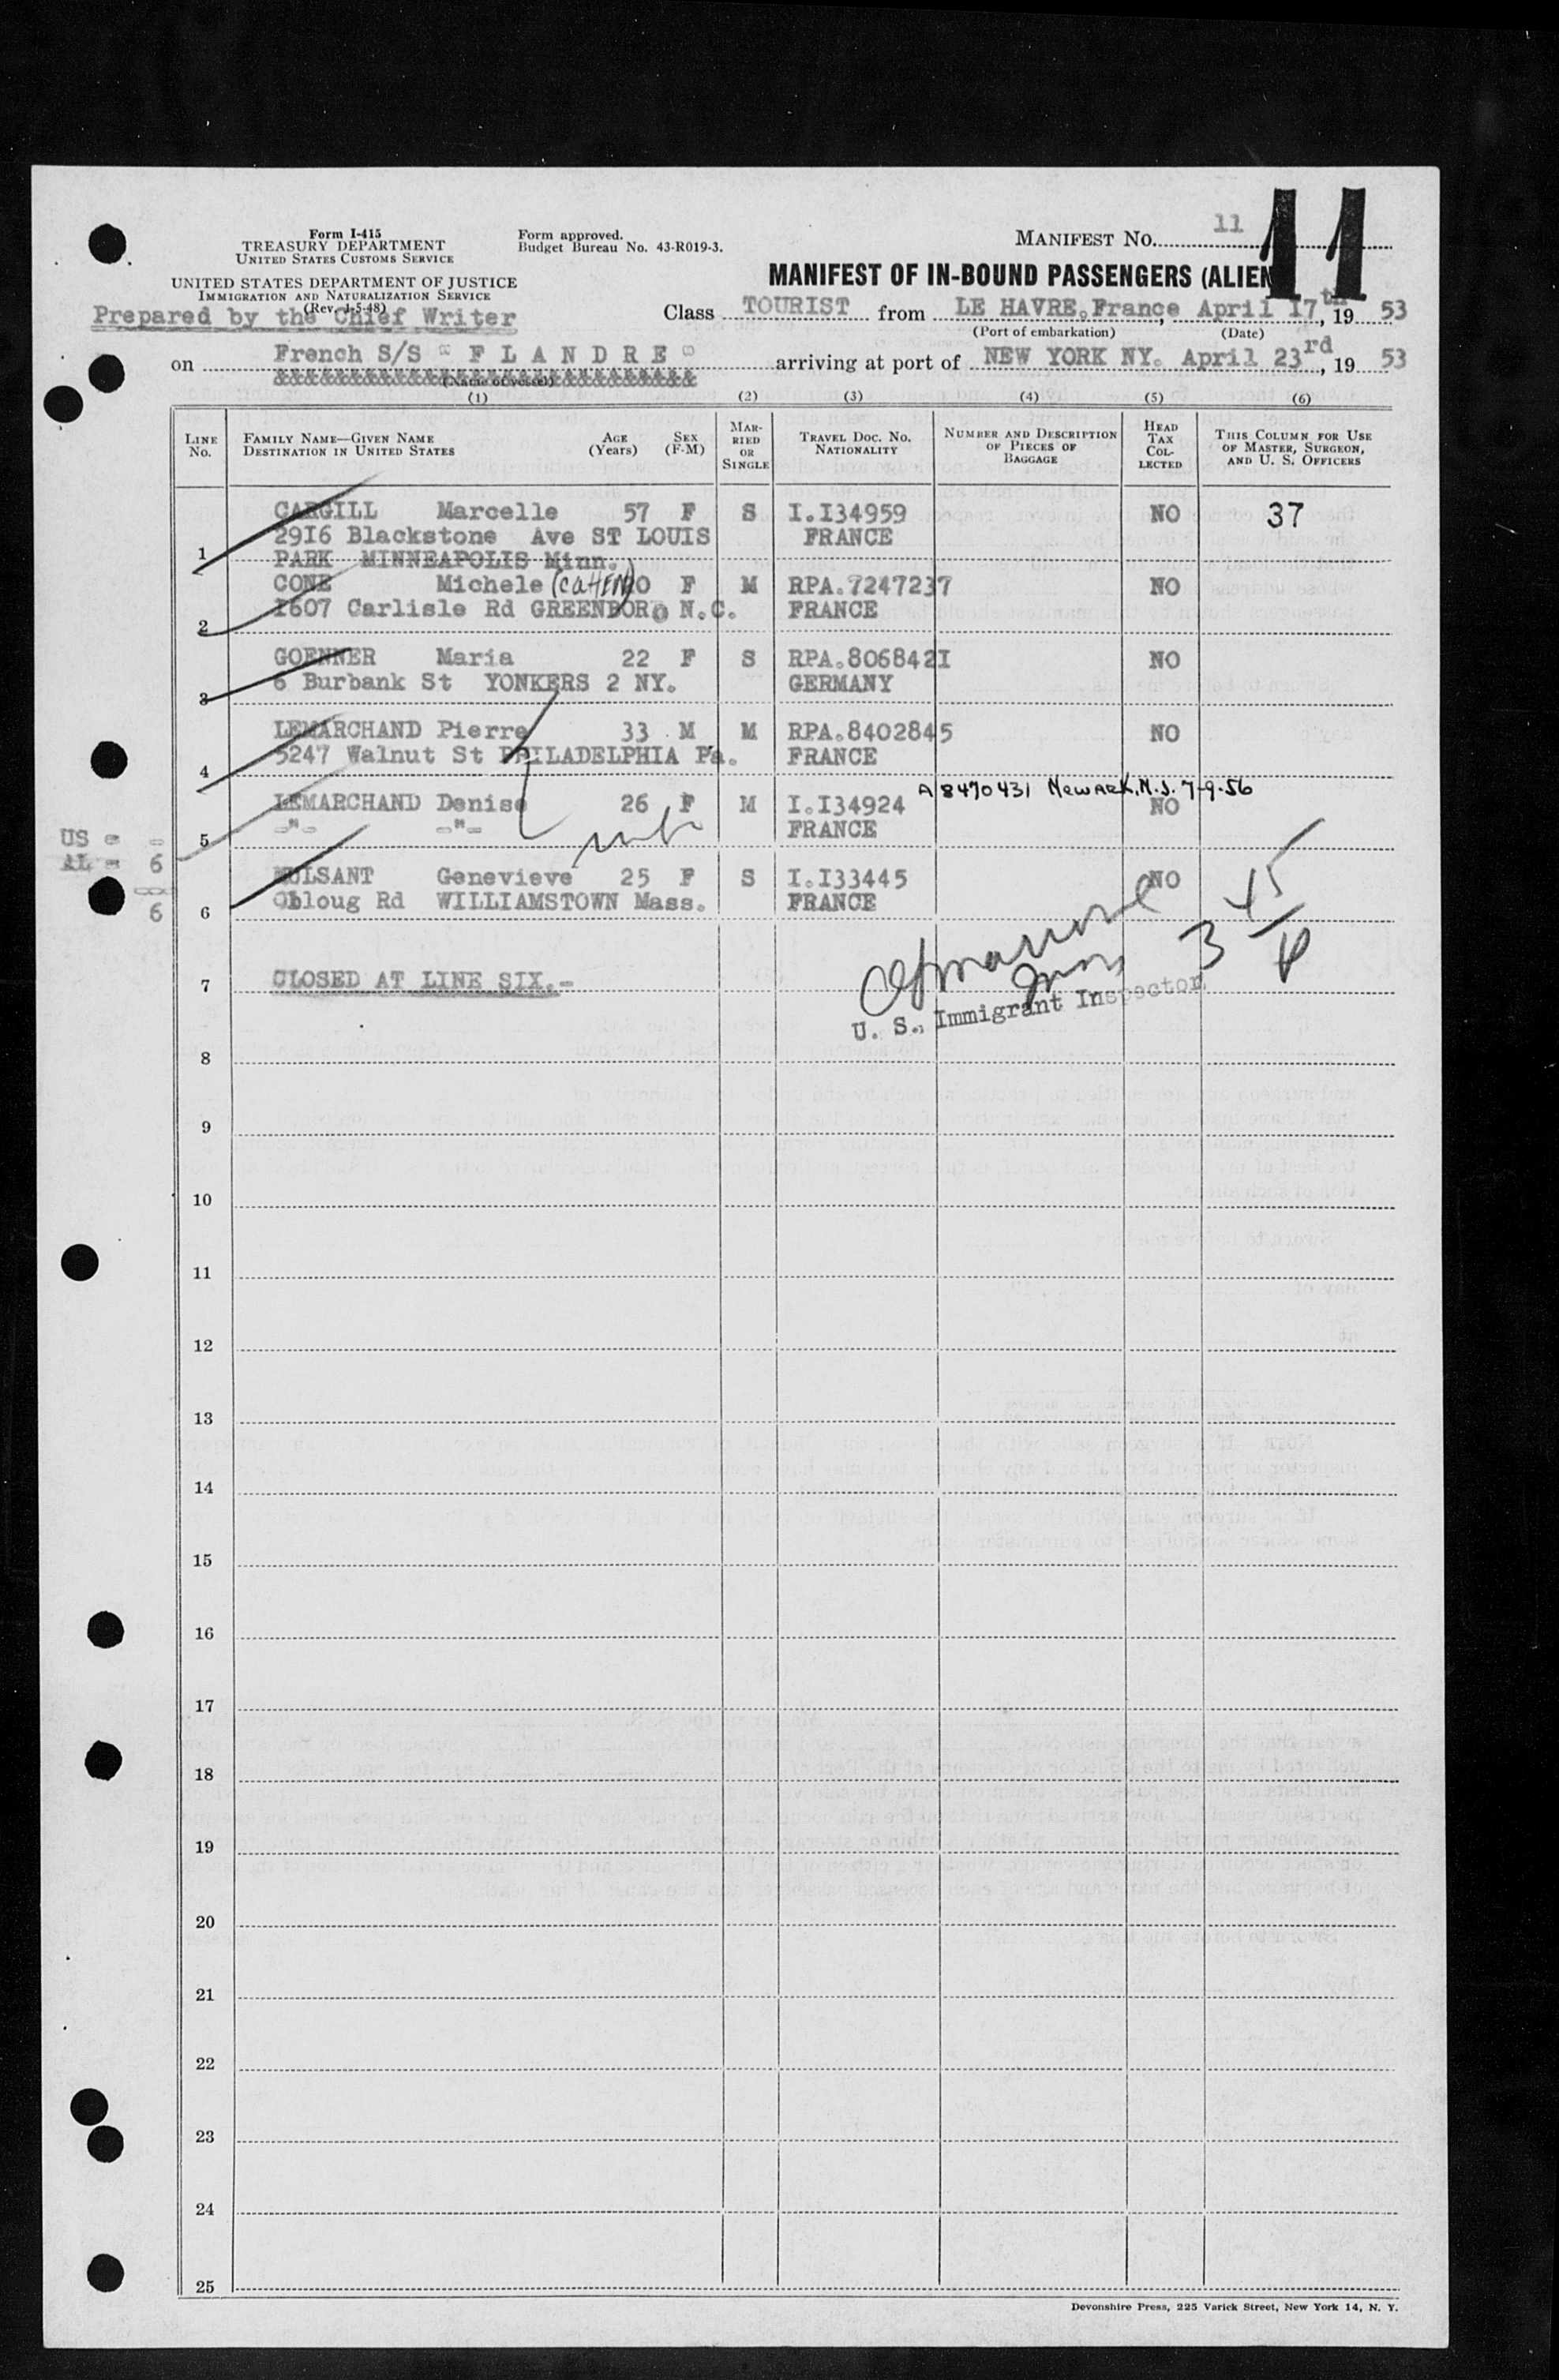 11
11
Form I-415
TREASURY DEPARTMENT
UNITED STATES CUSTOMS SERVICE
Form approved.
Budget Bureau No. 43-R019-3.
MANIFEST No. 11
UNITED STATES DEPARTMENT OF JUSTICE
IMMIGRATION AND NATURALIZATION SERVICE
(Rev. 1-5-48)
MANIFEST OF IN-BOUND PASSENGERS (ALIEN
Prepared by the Chief Writer
Class TOURIST from LE HAVRE.France, April 17th, 19 53
(Port of embarkation) (Date)
on French S/S " F L A N D R E " arriving at port of NEW YORK NY. April 23rd, 19 53
(Name of vessel)
(1) (2) (3) (4) (5) (6)
LINE No. FAMILY NAME—GIVEN NAME DESTINATION IN UNITED STATES AGE (Years) SEX (F-M) MARRIED OR SINGLE TRAVEL DOC. NO. NATIONALITY NUMBER AND DESCRIPTION OF PIECES OF BAGGAGE HEAD TAX COLLECTED THIS COLUMN FOR USE OF MASTER, SURGEON, AND U. S. OFFICERS
CARGILL Marcelle 57 F S I.I34959 NO 37
2916 Blackstone Ave ST LOUIS FRANCE
1 PARK MINNEAPOLIS Minn.
CONE Michele (CAHEN) F M RPA.7247237 NO
1607 Carlisle Rd GREENBORO N.C. FRANCE
2
GOENNER Maria 22 F S RPA.806842I NO
6 Burbank St YONKERS 2 NY. GERMANY
3
LEMARCHAND Pierre 33 M M RPA.8402845 NO
5247 Walnut St PHILADELPHIA Pa. FRANCE
4
A 8470431 Newark, N.J. 7-9-56
LEMARCHAND Denise 26 F M I.I34924 NO
-"- -"- FRANCE
5
US = -
AL = 6
6
MULSANT Genevieve 25 F S I.I33445 NO
Obloug Rd WILLIAMSTOWN Mass. FRANCE
6
3 45
7 CLOSED AT LINE SIX.-
U. S. Immigrant Inspector
8
9
10
11
12
13
14
15
16
17
18
19
20
21
22
23
24
25
Devonshire Press, 225 Varick Street, New York 14, N. Y.